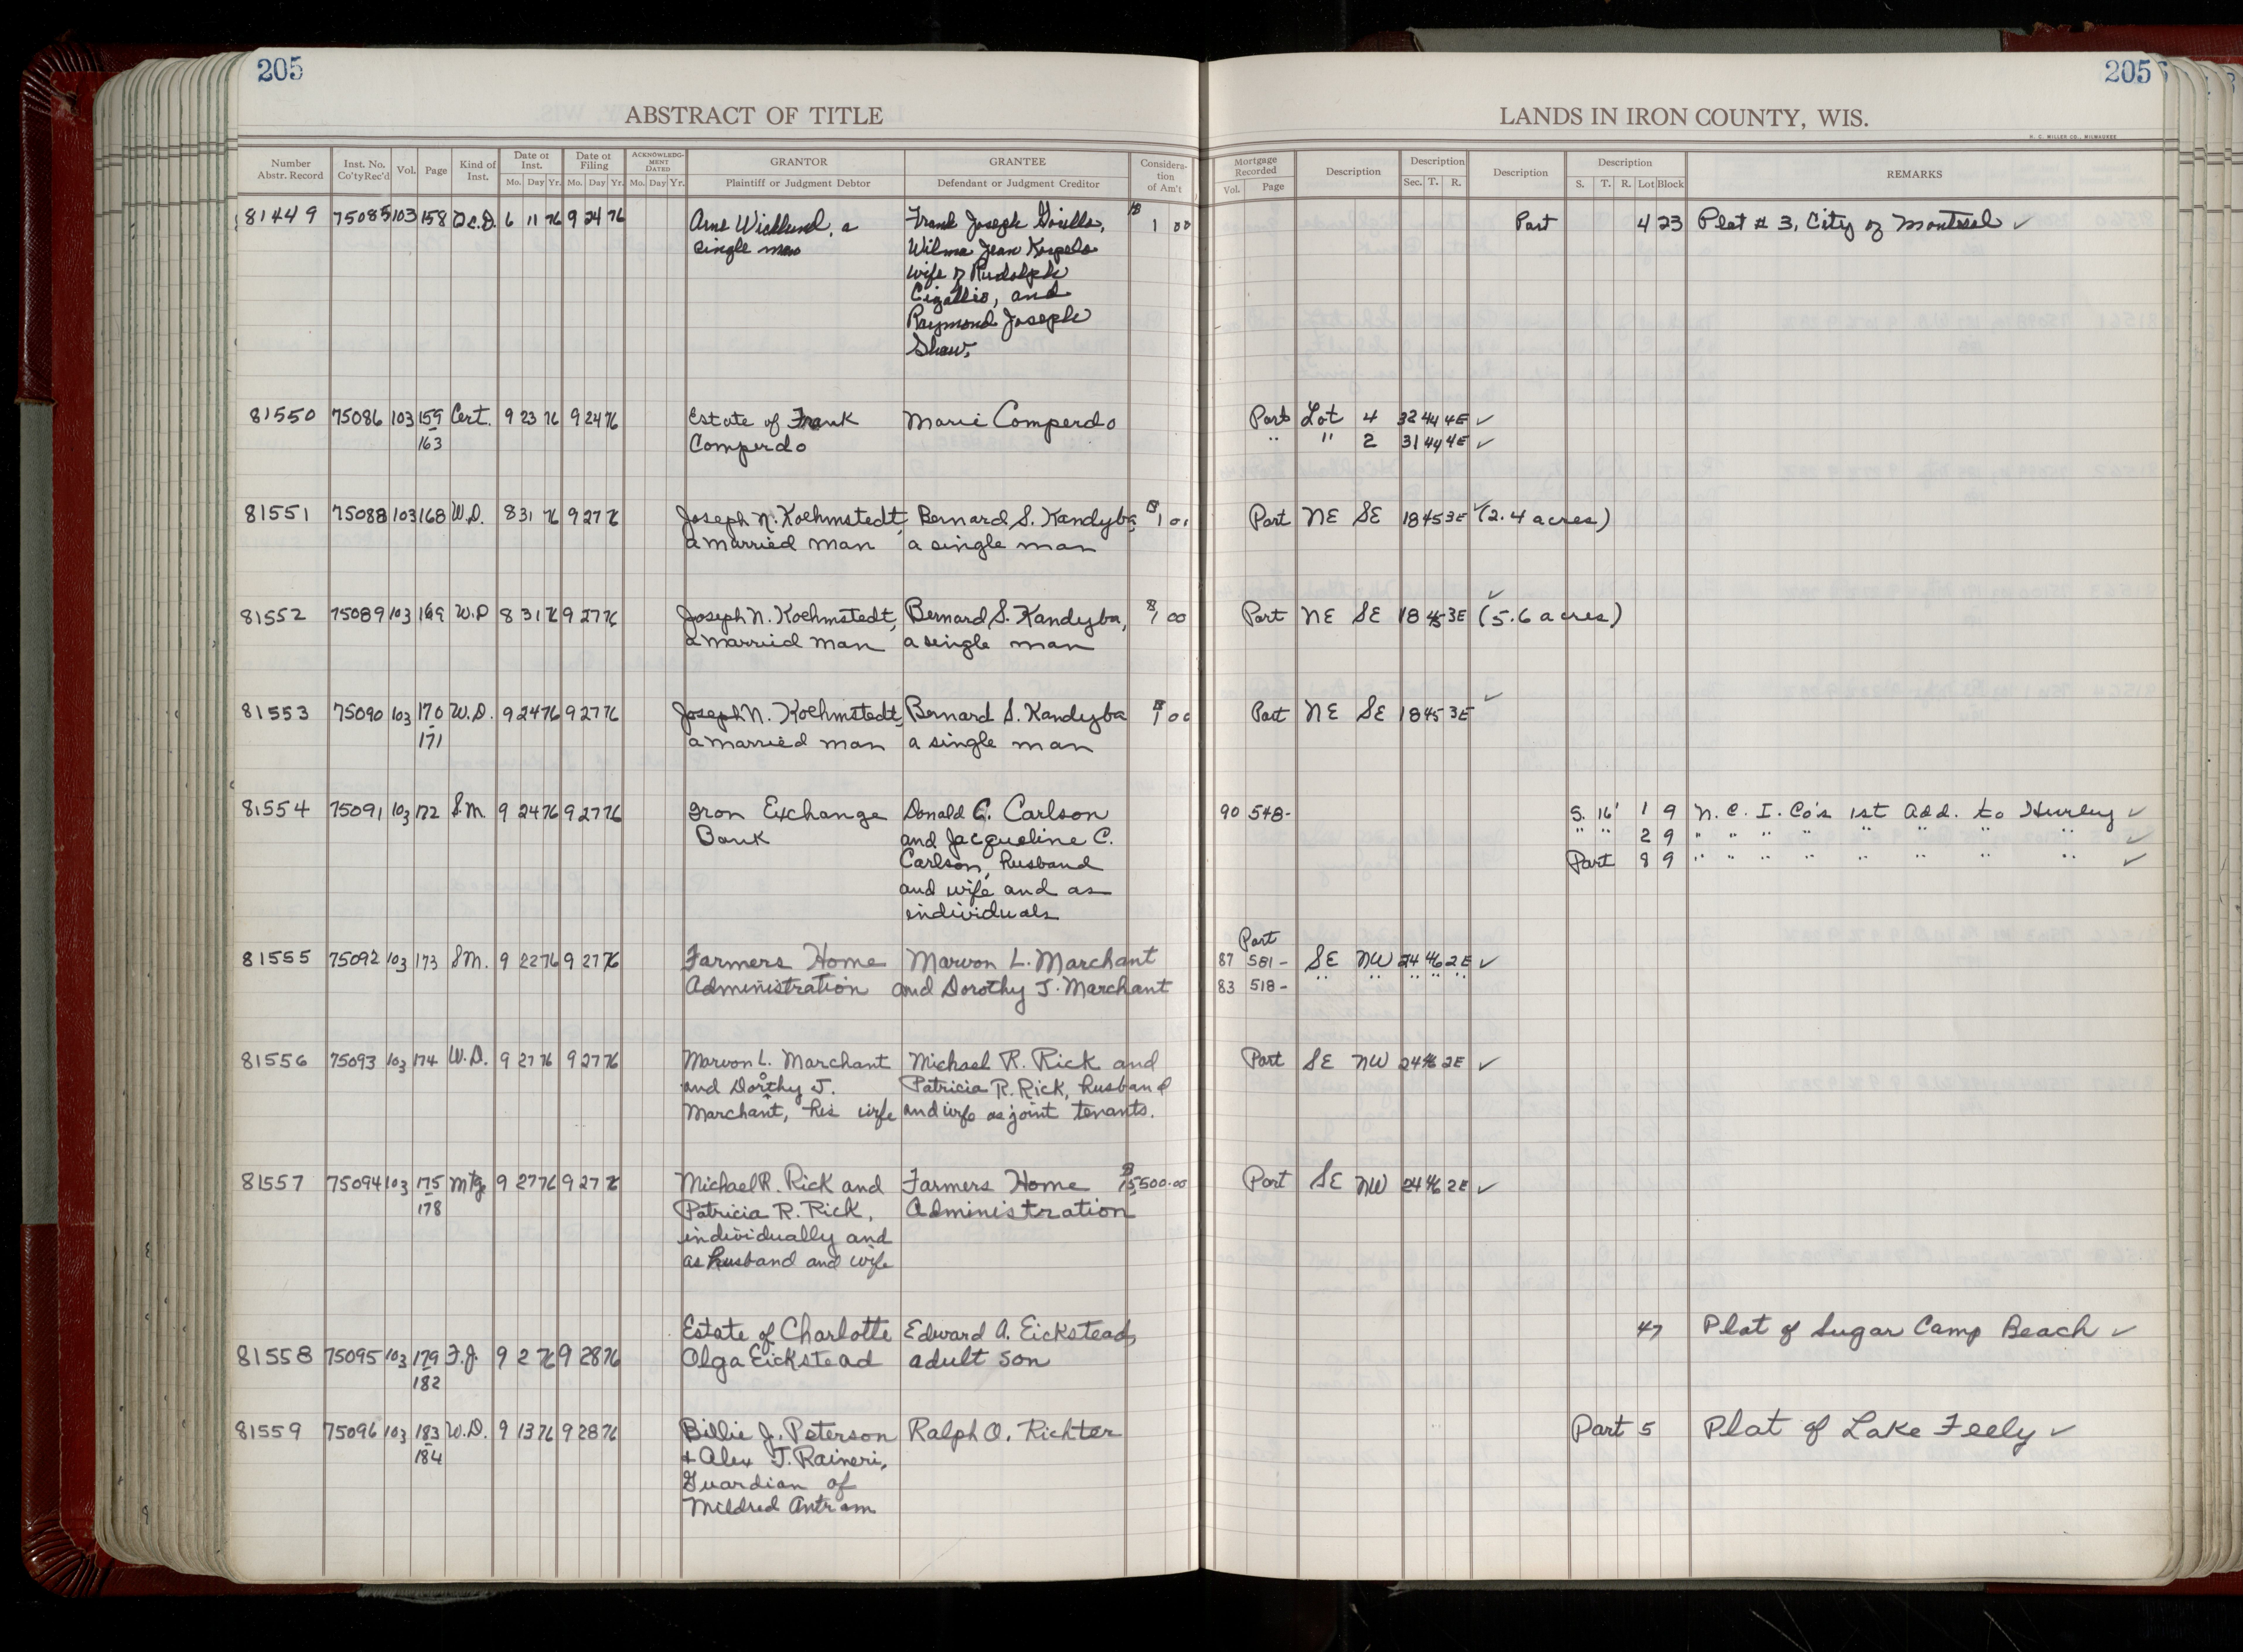 205
205
ABSTRACT OF TITLE
LANDS IN IRON COUNTY, WIS.
H. C. MILLER CO., MILWAUKEE
Number Abstr. Record Inst. No. Co'ty Rec'd Vol. Page Kind of Inst. Date of Inst. Mo. Day Yr. Date of Filing Mo. Day Yr. ACKNOWLEDGMENT DATED Mo. Day Yr. GRANTOR Plaintiff or Judgment Debtor GRANTEE Defendant or Judgment Creditor Consideration of Am't
Mortgage Recorded Vol. Page Description Description Sec. T. R. Description Description S. T. R. Lot Block REMARKS
81449 75085 103 158 Q.C.D. 6 11 76 9 24 76 Arne Wicklund, a Frank Joseph 1 00 Part 4 23 Plat # 3, City of Montreal ✓
single man Wilma Jean
wife of Rudolph
and
Raymond Joseph
Shaw,
81550 75086 103 159 Cert. 9 23 76 9 24 76 Estate of Frank Marie Comperdo Part Lot 4 32 44 4E ✓
163 Comperdo " " 2 31 44 4E ✓
81551 75088 103 168 W.D. 8 31 76 9 27 76 Joseph N. Koehmstedt, Bernard S. Kandyba, $1 01 Part NE SE 18 45 3E ✓ (2.4 acres)
a married man a single man
81552 75089 103 169 W.D 8 31 76 9 27 76 Joseph N. Koehmstedt, Bernard S. Kandyba, $1 00 Part NE SE 18 45 3E ✓ (5.6 acres)
a married man a single man
81553 75090 103 170 W.D. 9 24 76 9 27 76 Joseph N. Koehmstedt, Bernard S. Kandyba $1 00 Part NE SE 18 45 3E ✓
171 a married man a single man
81554 75091 103 172 S.M. 9 24 76 9 27 76 Iron Exchange Donald C. Carlson 90 548- S. 16' 1 9 N. C. I. Co's 1st Add. to Hurley ✓
Bank and Jacqueline C. " " 2 9 " " " " " " " " ✓
Carlson, husband Part 8 9 " " " " " " " " ✓
and wife and as
individuals
Part
81555 75092 103 173 S.M. 9 22 76 9 27 76 Farmers Home Marvon L. Marchant 87 581- SE NW 24 46 2E ✓
Administration and Dorothy J. Marchant 83 518- " " " " "
81556 75093 103 174 W.D. 9 27 76 9 27 76 Marvon L. Marchant Michael R. Rick and Part SE NW 24 46 2E ✓
and Dorothy J. Patricia R. Rick, husband
Marchant, his wife and wife as joint tenants.
81557 75094 103 175 Mtg 9 27 76 9 27 76 Michael R. Rick and Farmers Home $15,500.00 Part SE NW 24 46 2E ✓
178 Patricia R. Rick, Administration
individually and
as husband and wife
Estate of Charlotte Edward A. Eickstead, 47 Plat of Sugar Camp Beach ✓
81558 75095 103 179 F.J. 9 2 76 9 28 76 Olga Eickstead adult son
182
81559 75096 103 183 W.D. 9 13 76 9 28 76 Billie J. Peterson Ralph O. Richter Part 5 Plat of Lake Feely ✓
184 + Alex J. Raineri,
Guardian of
Mildred Antram